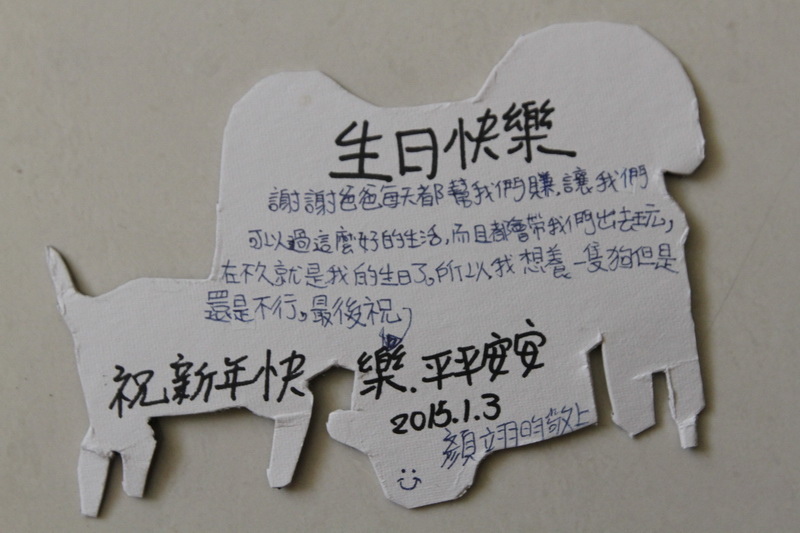 生日快樂
謝謝爸爸每天都幫我們賺,讓我們
可以過這麼好的生活,而且都會帶我們出去玩,
在不久就是我的生日了,所以我想養一隻狗但是
還是不行。最後祝
祝新年快樂.平平安安
2015.1.3
顏翊昀敬上